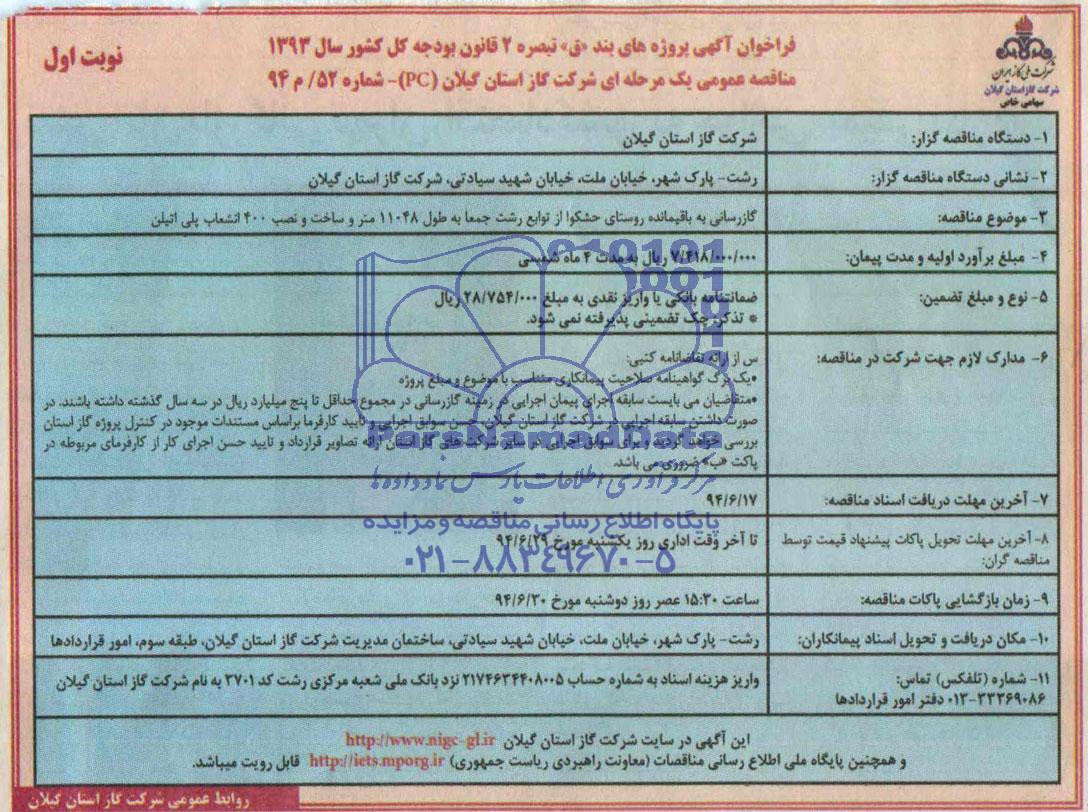 فراخوان آگهی پروژه های بند «ق» تبصره ۲ قانون بودجه کل کشور سال ۱۳۹۳
نوبت اول
مناقصه عمومی یک مرحله ای شرکت گاز استان گیلان (PC)- شماره ۵۲/ م ۹۴
شرکت ملی گاز ایران
شرکت گاز استان گیلان
سهامی خاص
۱- دستگاه مناقصه گزار:
شرکت گاز استان گیلان
۲- نشانی دستگاه مناقصه گزار:
رشت- پارک شهر، خیابان ملت، خیابان شهید سیادتی، شرکت گاز استان گیلان
۳- موضوع مناقصه:
گازرسانی به باقیمانده روستای حشکوا از توابع رشت جمعا به طول ۱۱۰۴۸ متر و ساخت و نصب ۴۰۰ انشعاب پلی اتیلن
۴- مبلغ برآورد اولیه و مدت پیمان:
۷/۴۱۸/۰۰۰/۰۰۰ ریال به مدت ۴ ماه شمسی
۵- نوع و مبلغ تضمین:
ضمانتنامه بانکی یا واریز نقدی به مبلغ ۲۸/۷۵۴/۰۰۰ ریال
* تذکر: چک تضمینی پذیرفته نمی شود.
۶- مدارک لازم جهت شرکت در مناقصه:
س از ارائه تقاضانامه کتبی:
•یک برگ گواهینامه صلاحیت پیمانکاری متناسب با موضوع و مبلغ پروژه
•متقاضیان می بایست سابقه اجرای پیمان اجرایی در زمینه گازرسانی در مجموع حداقل تا پنج میلیارد ریال در سه سال گذشته داشته باشند. در
صورت داشتن سابقه اجرایی در شرکت گاز استان گیلان، حسن سوابق اجرایی و تایید کارفرما براساس مستندات موجود در کنترل پروژه گاز استان
بررسی خواهد گردید و برای سوابق اجرایی در سایر شرکت های گاز استان ارائه تصاویر قرارداد و تایید حسن اجرای کار از کارفرمای مربوطه در
پاکت «ب» ضروری می باشد.
۷- آخرین مهلت دریافت اسناد مناقصه:
۹۴/۶/۱۷
۸- آخرین مهلت تحویل پاکات پیشنهاد قیمت توسط
مناقصه گران:
تا آخر وقت اداری روز یکشنبه مورخ ۹۴/۶/۲۹
۹- زمان بازگشایی پاکات مناقصه:
ساعت ۱۵:۳۰ عصر روز دوشنبه مورخ ۹۴/۶/۳۰
۱۰- مکان دریافت و تحویل اسناد پیمانکاران:
رشت- پارک شهر، خیابان ملت، خیابان شهید سیادتی، ساختمان مدیریت شرکت گاز استان گیلان، طبقه سوم، امور قراردادها
۱۱- شماره (تلفکس) تماس:
۰۱۳-۳۳۳۶۹۰۸۶ دفتر امور قراردادها
واریز هزینه اسناد به شماره حساب ۲۱۷۴۶۳۴۴۰۸۰۰۵ نزد بانک ملی شعبه مرکزی رشت کد ۳۷۰۱ به نام شرکت گاز استان گیلان
این آگهی در سایت شرکت گاز استان گیلان http://www.nigc-gl.ir
و همچنین پایگاه ملی اطلاع رسانی مناقصات (معاونت راهبردی ریاست جمهوری) http://iets.mporg.ir قابل رویت میباشد.
روابط عمومی شرکت گاز استان گیلان
مرکز فرآوری اطلاعات پارس نماد داده ها
پایگاه اطلاع رسانی مناقصه و مزایده
۰۲۱-۸۸۳۴۹۶۷۰-۵